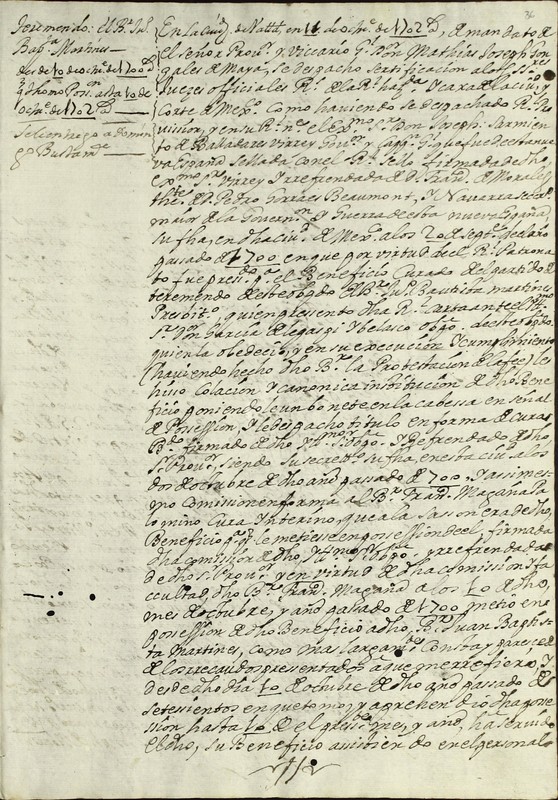 Teremendo: El Br. Ju.
Bapta. Martinez
desde 10 de octre. de 1700
hasta 10 de
octre. de 1702
Se le entregó a Domingo
Bustamte.
En la Ciud. de Vallid. en 11 de octre. de 1702 de mandato de
el señor Provor. y Viccario Gl. Don Mathias Joseph Gon
zales de Maya, se despacho sertificacion a los SSres.
Juezes officiales Rs. de la Rl. hazda. y Caxa de la ciud. y
Corte de Mexco. Como haviendo se despachado Rl. Pro
vission, y en su Rl. ne. el Exmo. sor. Don Joseph Sarmien
to de Balladares virrey Govor. y Cappn. Gl. que fue de esta nue
va España sellada con el Rl. Sello firmada de dho
exmo. Sr. Virrey y rrefrendada de D. Frand. de Morales
thte. de D. Pedro Torraes Beaumont, y Navarra scrio.
maior de la Governon. y Guerra de esta nueva España
su fha, en dha ciud. de Mexco. a los 20 de septe. del año
passado de 1700 en que por virtud de el Rl. Patrona
to fue presdo. pa. el Beneficio Curado del partido de
teremendo de este obpdo. el Br. Jun. Bautista martines
Presbito. quien presento dha Rl. Carta ante el Illmo.
Sr. Don Garcia de legaspi Y belasco obpo. de este obpdo.
quien la obedecio, y en su execucion y cumplimiento
(haviendo hecho dho Br. la Protestacion de la fee) le
hisso Colacion, y canonica institucion de dho Bene
ficio poniendole un bonete en la cabessa en señal
de Possesion, y le despacho titulo en forma de cura
Bdo. firmado de dho Yllmo. Sr. obpo. y Refrendado de dho
Sr. Provor. siendo su secretro. su fha, en esta ciud. a los
dos de octubre de dho año passado de 700, y assimes
mo Comission en forma al Br. Frand. Magaña Pa
lomino Cura Ynterino, que a la sasson era de dho,
Beneficio pa. q. le metiese en possession de el, firmada
dha comission de dho, Yllmo. Sr. obpo. y rrefrendada
de dho s. Provor. y en virtud de dha comission y fa
ccultad, dho Br. Frand. Magaña a los 10 de dho,
mes de octubre, y año passado de 1700 metio en
possession de dho Beneficio a dho. Br. Juan Baptis
ta Martines, como mas largamte. Consta y paresce
de los recaudos presentados a que me rrefiero, y
desde dho dia 10 de octubre de dho año passado de
setesientos en que tomo, y aprehendio dha posse
ssion hasta 10 de el presste. mes, y año, ha servido
el dho, su Beneficio assistiendo en el personalmte